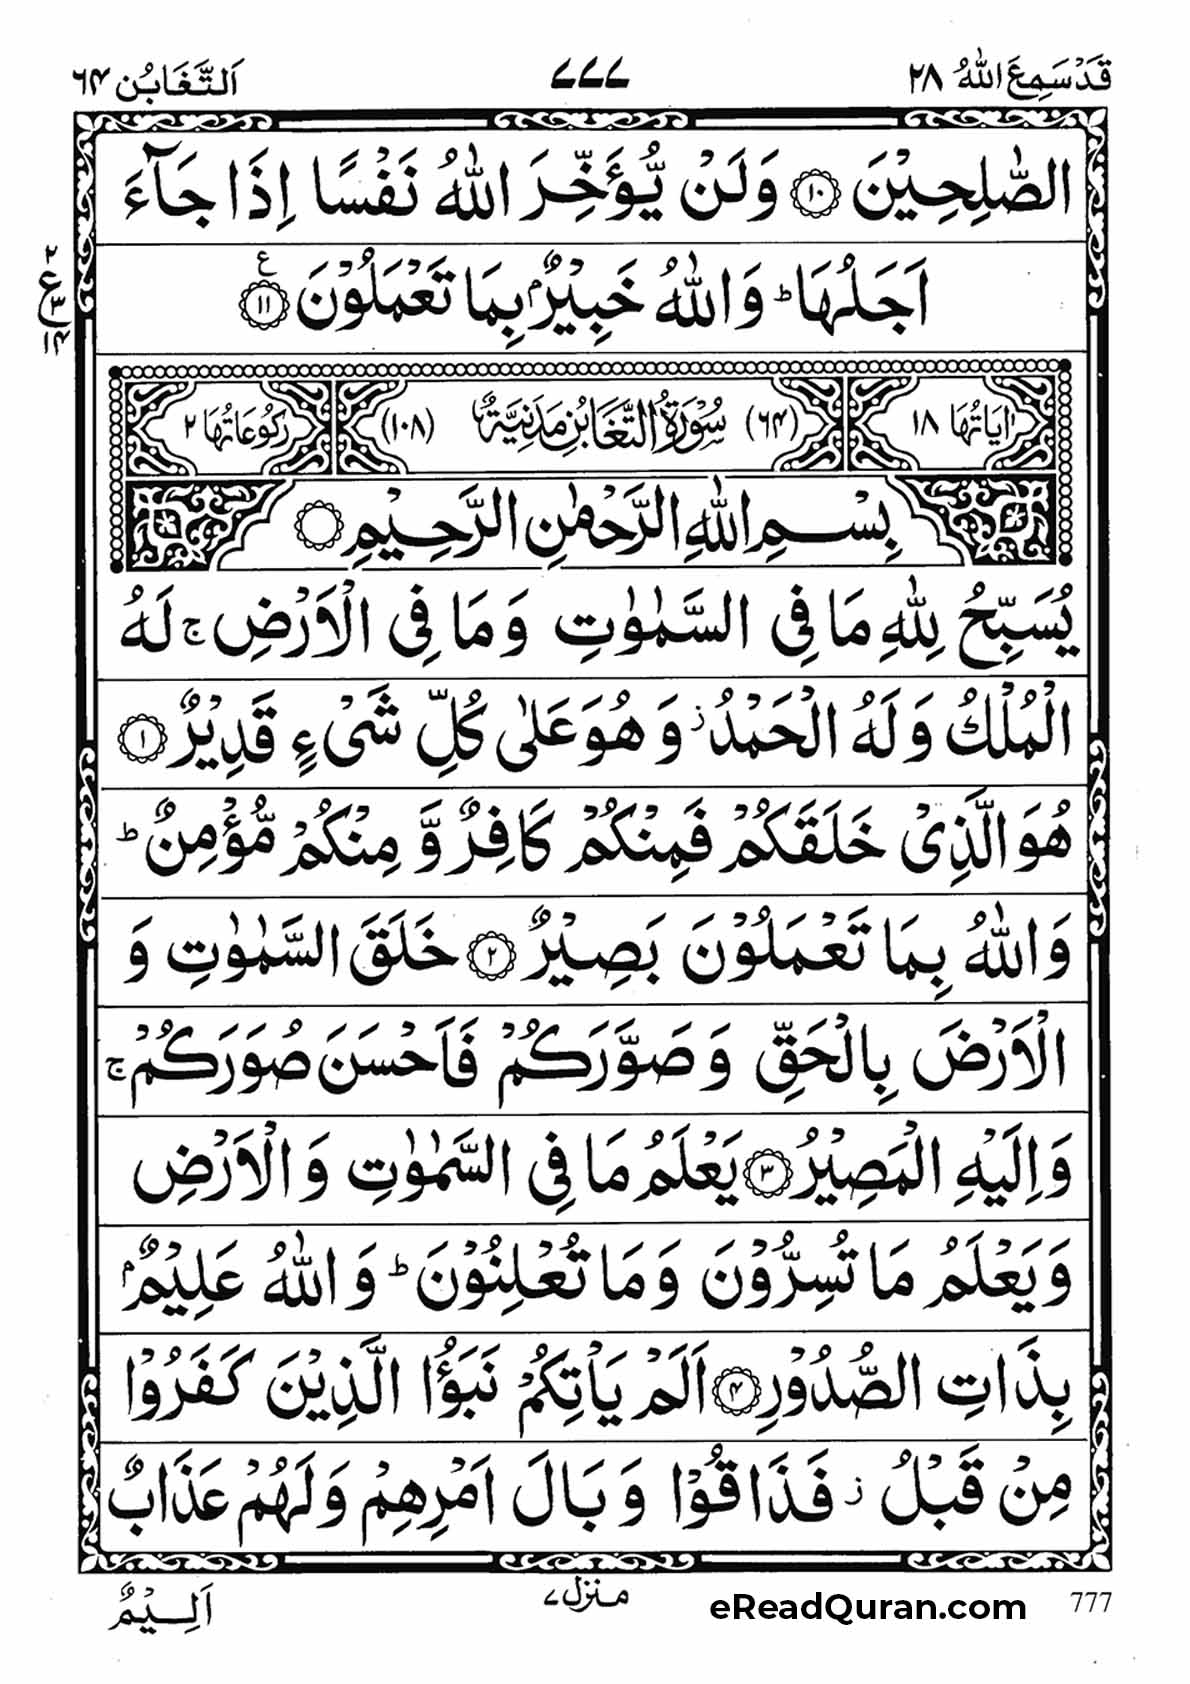 قَدْ سَمِعَ اللّٰهُ ۲۸
۷۷۷
اَلتَّغَابُن ۶۴
الصّٰلِحِیْنَ ۝۱۰ وَلَنْ یُّؤَخِّرَ اللّٰهُ نَفْسًا اِذَا جَآءَ
اَجَلُهَا ؕ وَاللّٰهُ خَبِیْرٌۢ بِمَا تَعْمَلُوْنَ ۝۱۱ ع
۲
ع
۳
۱۴
اٰیَاتُهَا ۱۸
(۶۴) سُوْرَةُ التَّغَابُنِ مَدَنِیَّةٌ (۱۰۸)
رُكُوْعَاتُهَا ۲
بِسْمِ اللّٰهِ الرَّحْمٰنِ الرَّحِیْمِ ۝
یُسَبِّحُ لِلّٰهِ مَا فِی السَّمٰوٰتِ وَمَا فِی الْاَرْضِ ۚ لَهُ
الْمُلْكُ وَلَهُ الْحَمْدُ ؗ وَهُوَ عَلٰی كُلِّ شَیْءٍ قَدِیْرٌ ۝۱
هُوَ الَّذِیْ خَلَقَكُمْ فَمِنْكُمْ كَافِرٌ وَّمِنْكُمْ مُّؤْمِنٌ ؕ
وَاللّٰهُ بِمَا تَعْمَلُوْنَ بَصِیْرٌ ۝۲ خَلَقَ السَّمٰوٰتِ وَ
الْاَرْضَ بِالْحَقِّ وَصَوَّرَكُمْ فَاَحْسَنَ صُوَرَكُمْ ۚ
وَاِلَیْهِ الْمَصِیْرُ ۝۳ یَعْلَمُ مَا فِی السَّمٰوٰتِ وَالْاَرْضِ
وَیَعْلَمُ مَا تُسِرُّوْنَ وَمَا تُعْلِنُوْنَ ؕ وَاللّٰهُ عَلِیْمٌۢ
بِذَاتِ الصُّدُوْرِ ۝۴ اَلَمْ یَاْتِكُمْ نَبَؤُا الَّذِیْنَ كَفَرُوْا
مِنْ قَبْلُ ؗ فَذَاقُوْا وَبَالَ اَمْرِهِمْ وَلَهُمْ عَذَابٌ
اَلِیْمٌ
منزل ۷
eReadQuran.com
777